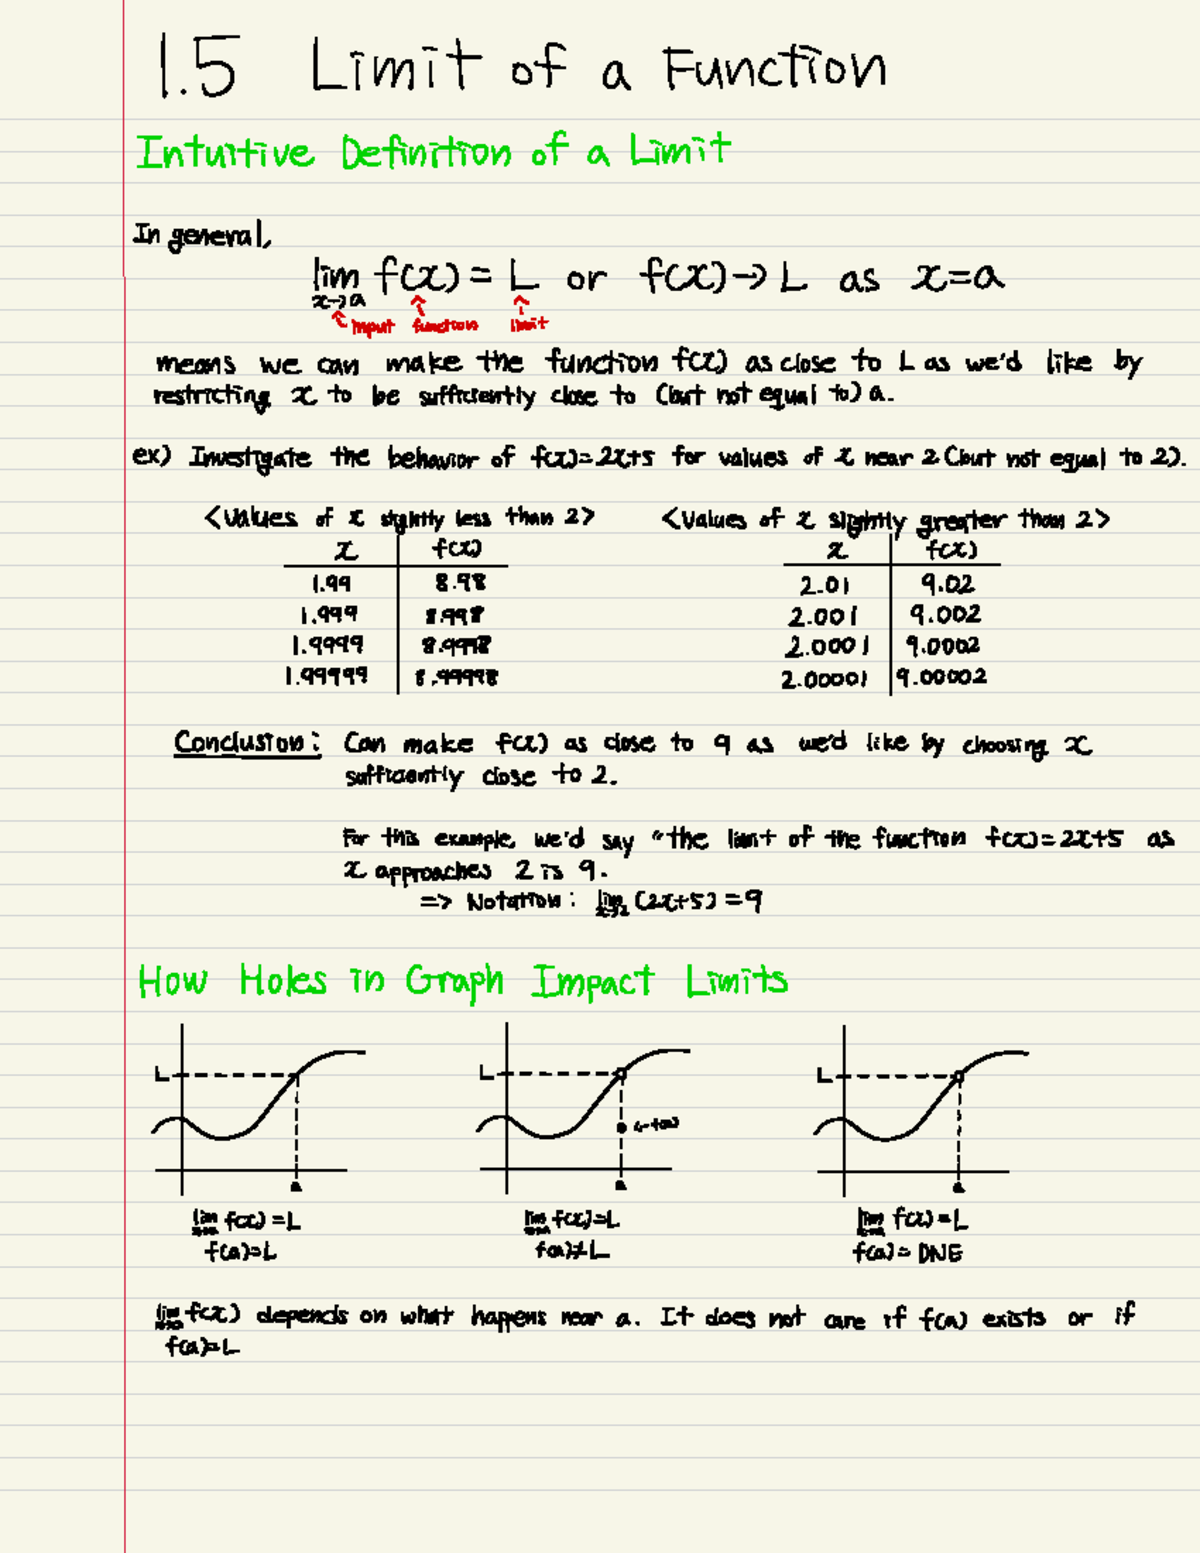 1.5 Limit of a Function
Intuitive Definition of a Limit
In general,
lim f(x) = L or f(x) → L as x=a
x→a
input function limit
means we can make the function f(x) as close to L as we'd like by
restricting x to be sufficiently close to (but not equal to) a.
ex) Investigate the behavior of f(x)=2x+5 for values of x near 2 (but not equal to 2).
<Values of x slightly less than 2> <Values of x slightly greater than 2>
x f(x) x f(x)
1.99 8.98 2.01 9.02
1.999 8.998 2.001 9.002
1.9999 8.9998 2.0001 9.0002
1.99999 8.99998 2.00001 9.00002
Conclusion: Can make f(x) as close to 9 as we'd like by choosing x
sufficiently close to 2.
For this example, we'd say "the limit of the function f(x)=2x+5 as
x approaches 2 is 9.
=> Notation: lim (2x+5) = 9
x→2
How Holes in Graph Impact Limits
L L L
←f(a)
a a a
lim f(x)=L lim f(x)=L lim f(x)=L
x→a x→a x→a
f(a)=L f(a)≠L f(a)=DNE
lim f(x) depends on what happens near a. It does not care if f(a) exists or if
x→a
f(a)=L